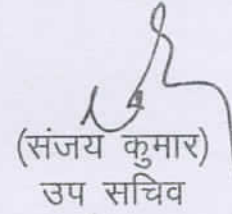 (संजय कुमार)
उप सचिव